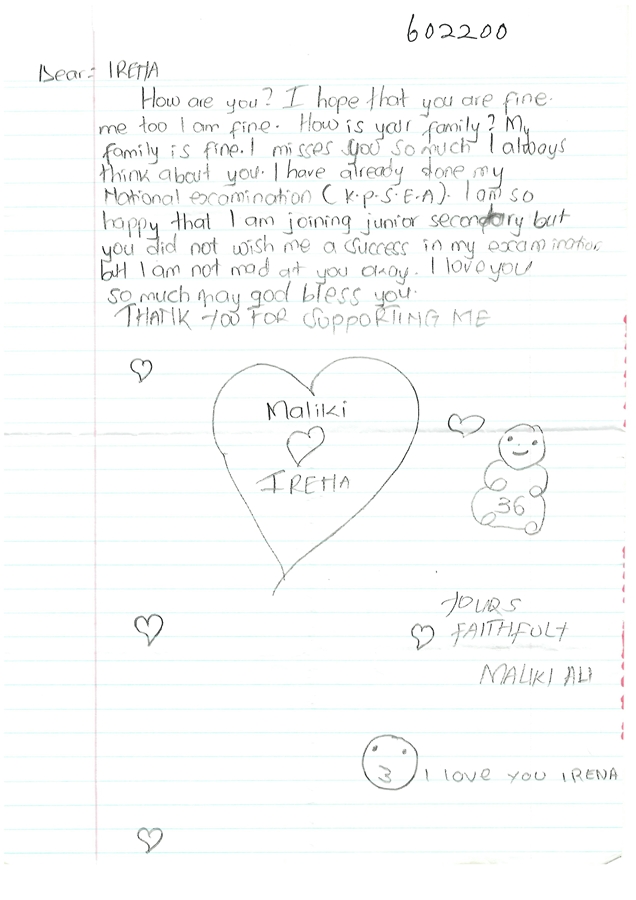 602200
Dear:- IRENA
How are you? I hope that you are fine.
me too I am fine. How is your family? My
family is fine. I misses you so much I always
think about you. I have already done my
National examination (K.P.S.E.A). I am so
happy that I am joining junior secondary but
you did not wish me a success in my examination
but I am not mad at you okay. I love you
so much may god bless you.
THANK YOU FOR SUPPORTING ME
Maliki
IRENA
36
YOURS
FAITHFULY
MALIKI ALI
I LOVE YOU IRENA